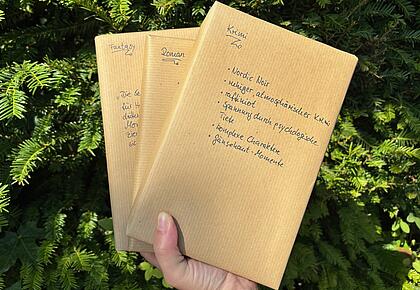 Fantasy
"Die le
für 14
Roman
Krimi
• Nordic Noir
• ruhiger, atmosphärischer Krimi
• raffiniert
• Spannung durch psychologische
Tiefe
• komplexe Charaktere
• Gänsehaut-Momente